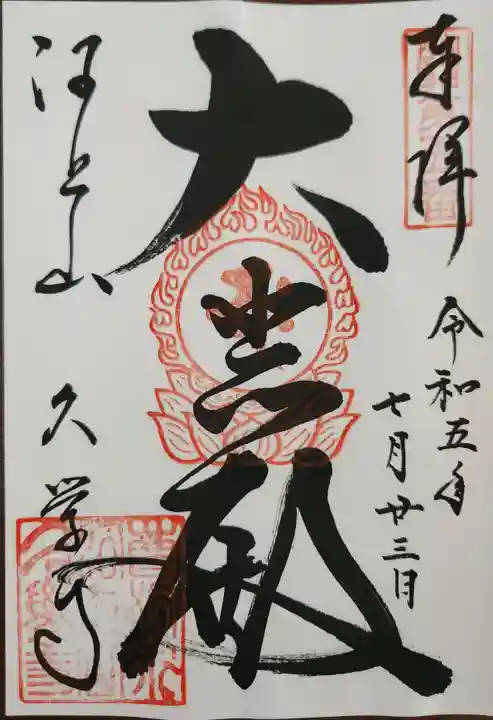 奉拝
令和五年
七月廿三日
大悲殿
河上山
久学寺